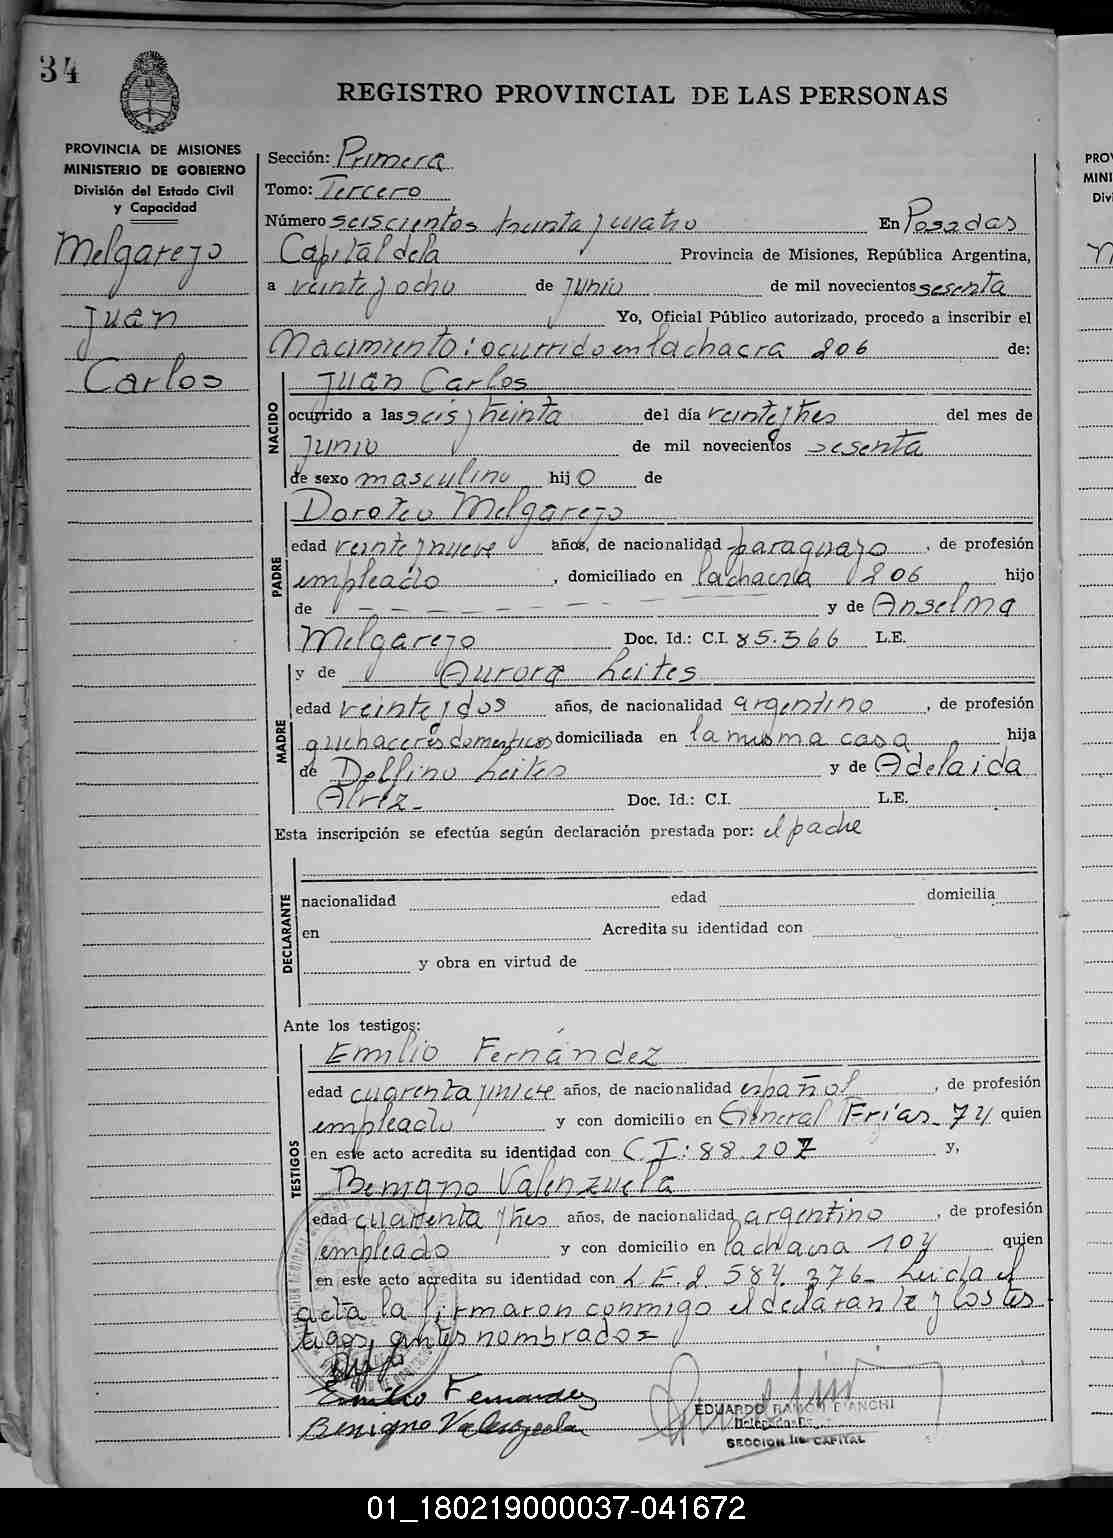 34
REGISTRO PROVINCIAL DE LAS PERSONAS
PROVINCIA DE MISIONES
MINISTERIO DE GOBIERNO
División del Estado Civil
y Capacidad
Melgarejo
Juan
Carlos
Sección: Primera
Tomo: Tercero
Número seiscientos treinta y cuatro En Posadas
Capital de la Provincia de Misiones, República Argentina,
a veinte y ocho de junio de mil novecientos sesenta
Yo, Oficial Público autorizado, procedo a inscribir el
Nacimiento: ocurrido en la chacra 206 de:
NACIDO
Juan Carlos
ocurrido a las seis y treinta del día veinte y tres del mes de
junio de mil novecientos sesenta
de sexo masculino hijo de
PADRE
Doroteo Melgarejo
edad veinte y nueve años, de nacionalidad paraguayo, de profesión
empleado, domiciliado en la chacra 206 hijo
de y de Anselma
Melgarejo Doc. Id.: C.I. 85.366 L.E.
MADRE
y de Aurora Leites
edad veinte y dos años, de nacionalidad argentino, de profesión
quehaceres domesticos domiciliada en la misma casa hija
de Delfino Leites y de Adelaida
Alvez.- Doc. Id.: C.I. L.E.
Esta inscripción se efectúa según declaración prestada por: el padre
DECLARANTE
nacionalidad edad domicilia
en Acredita su identidad con
y obra en virtud de
Ante los testigos:
TESTIGOS
Emilio Fernández
edad cuarenta y nueve años, de nacionalidad español, de profesión
empleado y con domicilio en General Frías 74 quien
en este acto acredita su identidad con C.I: 88.207 y,
Benigno Valenzuela
edad cuarenta y tres años, de nacionalidad argentino, de profesión
empleado y con domicilio en la chacra 104 quien
en este acto acredita su identidad con L.E. 2.584.376- Leida el
acta la firmaron conmigo el declarante y los tes
tigos, antes nombrados=
Emilio Fernandez
Benigno Valenzuela
EDUARDO RAMÓN BIANCHI
Delegado
SECCION CAPITAL
01_180219000037-041672
PRO
MINI
Divi